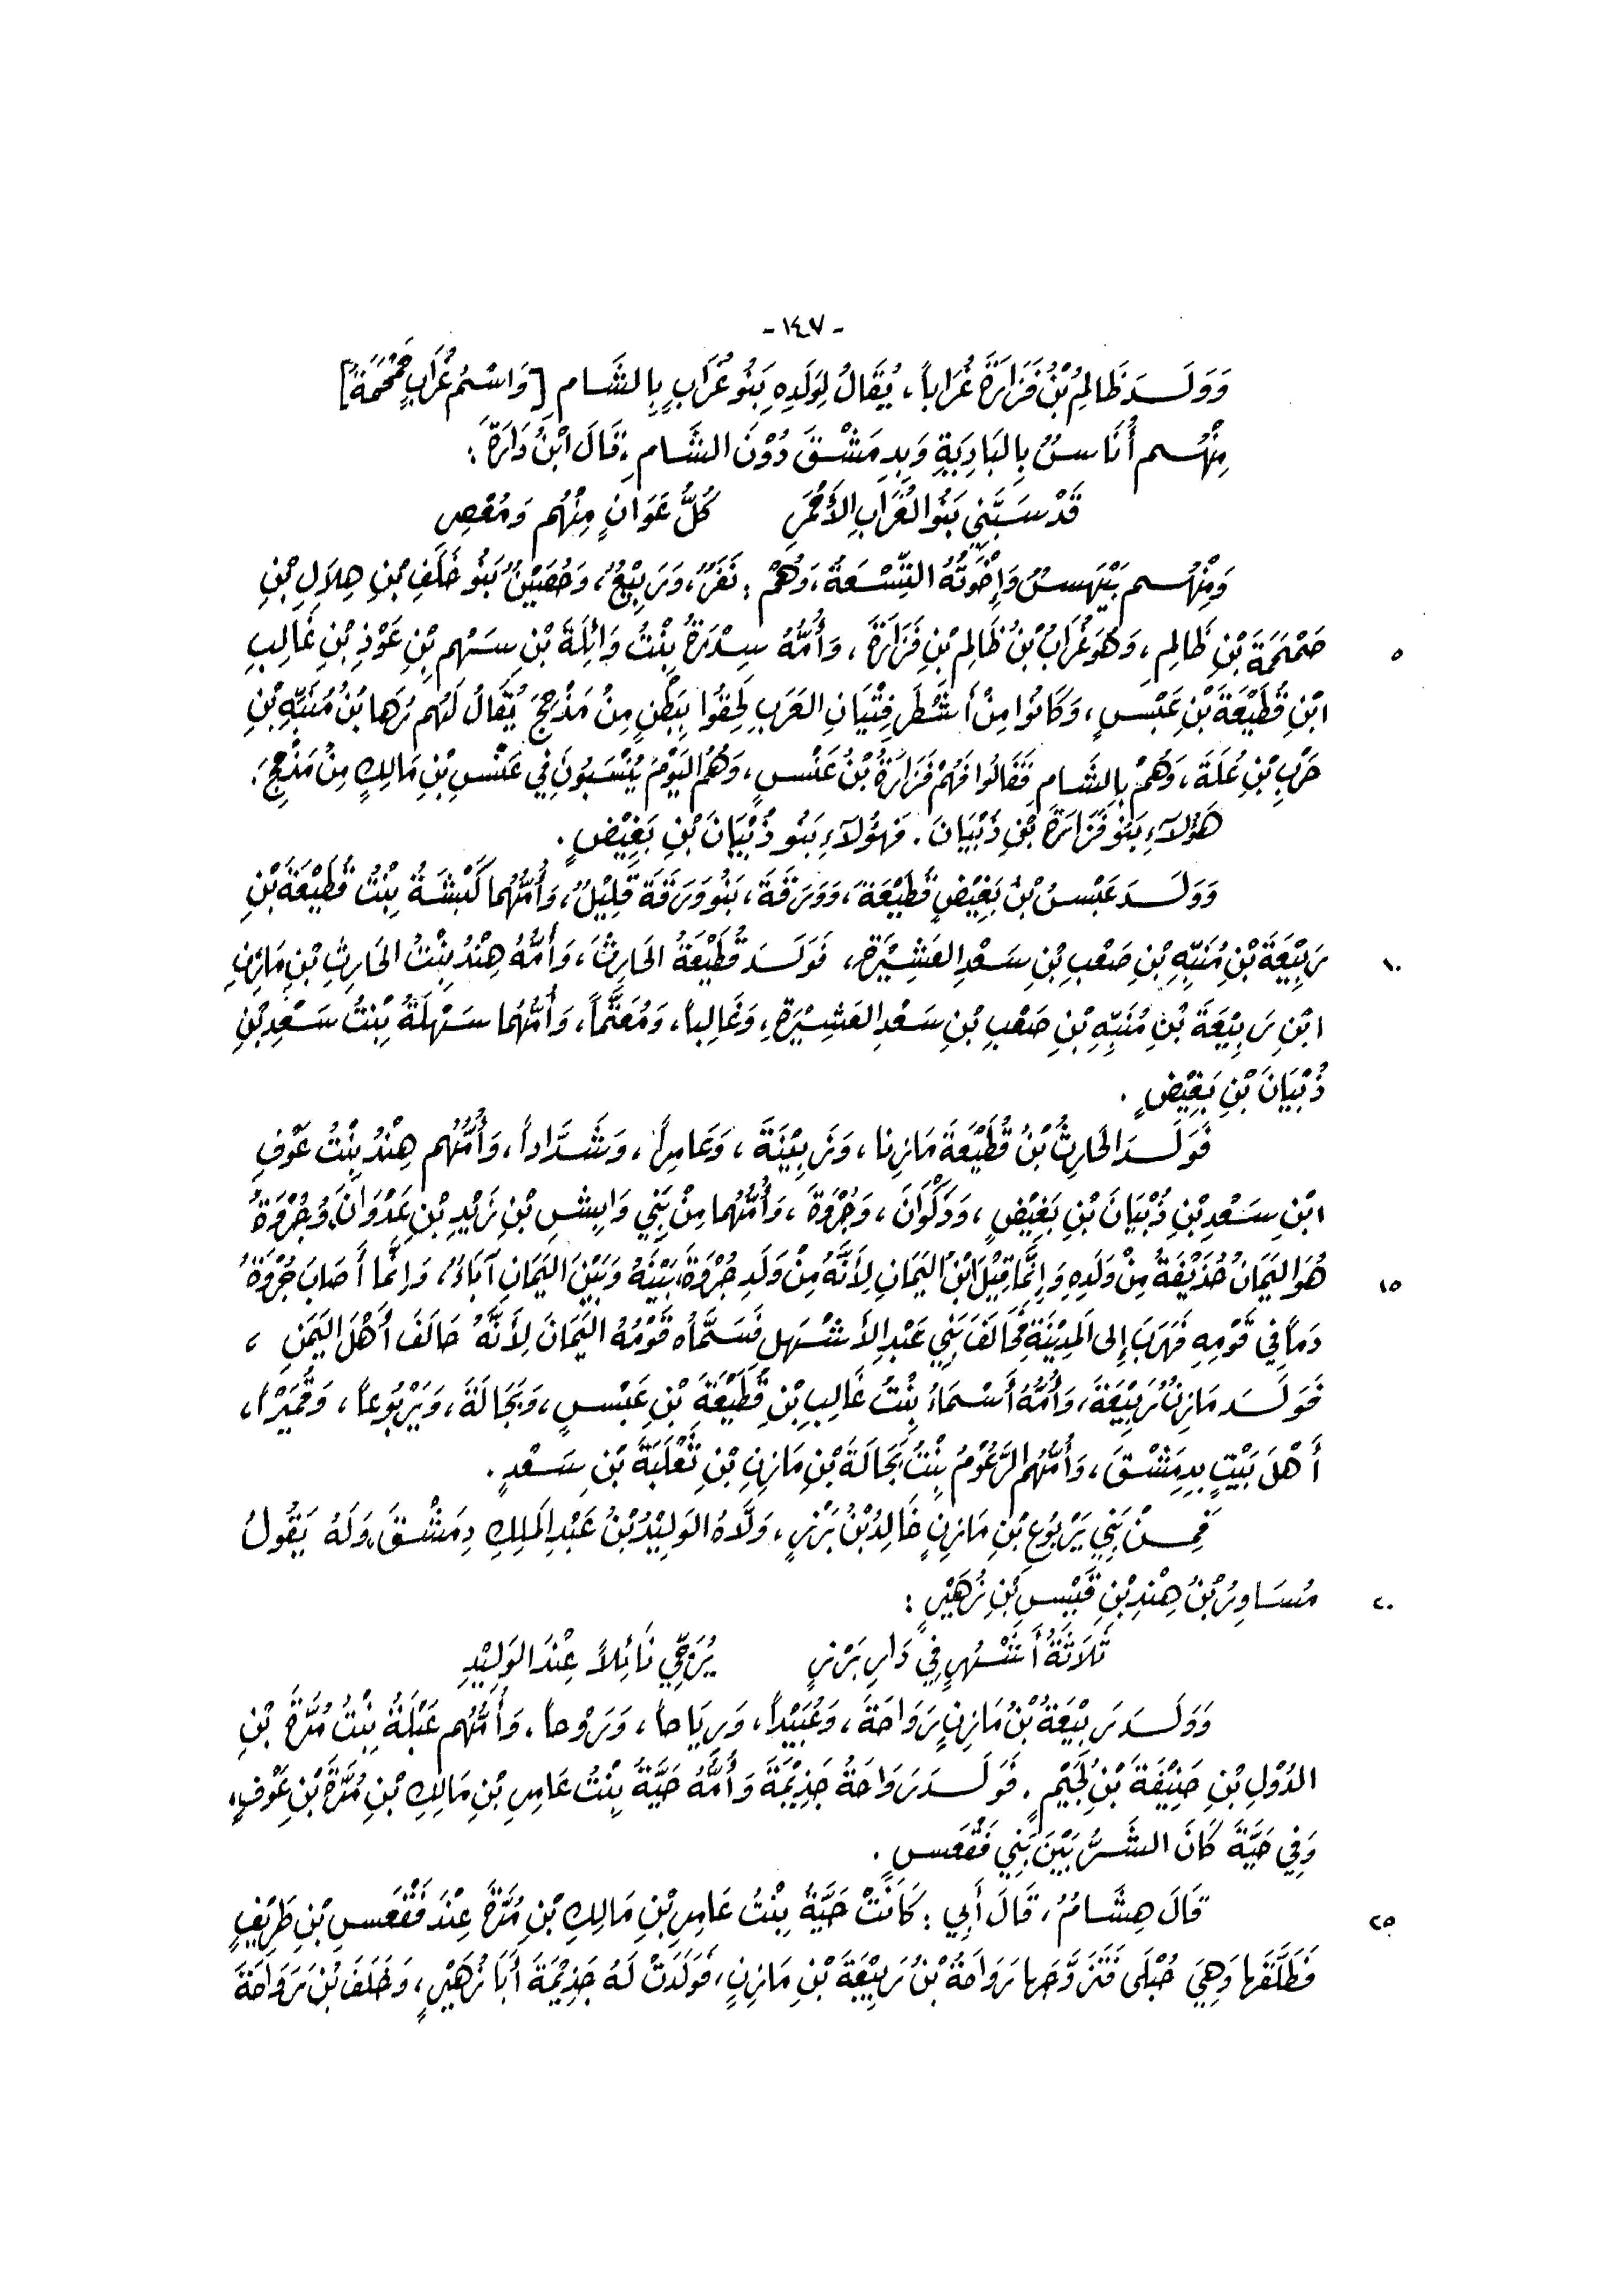 - ١٤٧ -
وَوَلَـــدَ ظَالِمُ بْنُ فَزَارَةَ غُرَاباً، يُقَالُ لِوَلَدِهِ بَنُو غُرَابٍ بِالشَّامِ [وَاسْمُ غُرَابٍ حَمْحَمَةُ]
مِنْهُـــم أُنَاسٌ بِالبَادِيَةِ وَبِدِمَشْقَ دُوْنَ الشَّامِ، قَالَ ابْنُ دَارَةَ :
قَدْ سَبَّنِي بَنُو الغُرَابِ الأَحْمَرِ كُلُّ عَوَانٍ مِنْهُم وَمُعْصِرِ
وَمِنْهُـــم بَيْهَسٌ وَإِخْوَتُهُ التِّسْعَةُ، وَهُمْ : نَفَرٌ، وَرَبِيْعٌ، وَحُصَيْنٌ بَنُو خَلَفِ بْنِ هِلَالِ بْنِ
٥ حَمْحَمَةَ بْنِ ظَالِمٍ، وَهُوَ غُرَابُ بْنُ ظَالِمِ بْنِ فَزَارَةَ، وَأُمُّهُ سِدْرَةُ بِنْتُ وَائِلَةَ بْنِ سَهْمِ بْنِ عَوْذِ بْنِ غَالِبِ
ابْنِ قُطَيْعَةَ بْنِ عَبْسٍ، وَكَانُوا مِنْ أَشْطَرِ فِتْيَانِ العَرَبِ لَحِقُوا بِبَطْنٍ مِنْ مَذْحِجَ يُقَالُ لَهُم رَهَا بْنُ مُنَبِّهِ بْنِ
حَرْبِ بْنِ عُلَةَ، وَهُمْ بِالشَّامِ فَقَالُوا فَهُمْ فَزَارَةُ بْنُ عَنْسٍ، وَهُمُ اليَوْمَ يُنْسَبُونَ فِي عَنْسِ بْنِ مَالِكٍ مِنْ مَذْحِجَ.
هَؤُلَاءِ بَنُو فَزَارَةَ بْنِ ذُبْيَانَ. فَهَؤُلَاءِ بَنُو ذُبْيَانَ بْنِ بَغِيْضٍ.
وَوَلَـــدَ عَبْسُ بْنُ بَغِيْضٍ قُطَيْعَةَ، وَوَرَقَةَ، بَنُو وَرَقَةَ قَلِيْلٌ، وَأُمُّهُمَا كَبْشَةُ بِنْتُ قُطَيْعَةَ بْنِ
١٠ رَبِيْعَةَ بْنِ مُنَبِّهِ بْنِ صَعْبِ بْنِ سَعْدِ العَشِيْرَةِ، فَوَلَـــدَ قُطَيْعَةُ الحَارِثَ، وَأُمُّهُ هِنْدُ بِنْتُ الحَارِثِ بْنِ مَازِنِ
ابْنِ رَبِيْعَةَ بْنِ مُنَبِّهِ بْنِ صَعْبِ بْنِ سَعْدِ العَشِيْرَةِ، وَغَالِباً، وَمُعَتَّماً، وَأُمُّهُمَا سَهْلَةُ بِنْتُ سَعْدِ بْنِ
ذُبْيَانَ بْنِ بَغِيْضٍ.
فَوَلَـــدَ الحَارِثُ بْنُ قُطَيْعَةَ مَازِنا، وَزَبِيْنَةَ، وَعَامِراً، وَشَدَّاداً، وَأُمُّهُم هِنْدُ بِنْتُ عَوْفِ
ابْنِ سَعْدِ بْنِ ذُبْيَانَ بْنِ بَغِيْضٍ، وَذَكْوَانَ، وَجُرْوَةَ، وَأُمُّهُمَا مِنْ بَنِي وَابِشِ بْنِ زَيْدِ بْنِ عَدْوَانَ، وَجُرْوَةُ
١٥ هُوَ اليَمَانُ حُذَيْفَةُ مِنْ وَلَدِهِ وَإِنَّمَا قِيْلَ ابْنُ اليَمَانِ لِأَنَّهُ مِنْ وَلَدِ جُرْوَةَ، بَيْنَهُ وَبَيْنَ اليَمَانِ آبَاءٌ، وَإِنَّمَا أَصَابَ جُرْوَةُ
دَماً فِي قَوْمِهِ فَهَرَبَ إِلى المَدِيْنَةِ فَحَالَفَ بَنِي عَبْدِ الأَشْهَلِ فَسَمَّاهُ قَوْمُهُ اليَمَانَ لِأَنَّهُ حَالَفَ أَهْلَ اليَمَنِ ،
فَوَلَـــدَ مَازِنٌ رَبِيْعَةَ، وَأُمُّهُ أَسْمَاءُ بِنْتُ غَالِبِ بْنِ قُطَيْعَةَ بْنِ عَبْسٍ، وَبَجَالَةَ، وَيَرْبُوعاً، وَقُمَيْراً،
أَهْلَ بَيْتٍ بِدِمَشْقَ، وَأُمُّهُم الرَّعُوْمُ بِنْتُ بَجَالَةَ بْنِ مَازِنِ بْنِ ثَعْلَبَةَ بْنِ سَعْدٍ.
فَمِـــنْ بَنِي يَرْبُوعِ بْنِ مَازِنٍ خَالِدُ بْنُ بَرْزٍ، وَلَّاهُ الوَلِيْدُ بْنُ عَبْدِ المَلِكِ دِمَشْقَ، وَلَهُ يَقُولُ
٢٠ مُسَاوِرُ بْنُ هِنْدِ بْنِ قَيْسِ بْنِ زُهَيْرٍ :
ثَلَاثَةُ أَشْهُرٍ فِي دَارِ بَرْزٍ يُرَجِّي نَائِلاً عِنْدَ الوَلِيْدِ
وَوَلَـــدَ رَبِيْعَةُ بْنُ مَازِنٍ رَوَاحَةَ، وَعُبَيْداً، وَرِيَاحاً، وَرَوْحاً، وَأُمُّهُم عَبْلَةُ بِنْتُ مُرَّةَ بْنِ
الدُوْلِ بْنِ حَنِيْفَةَ بْنِ لُجَيْمٍ. فَوَلَـــدَ رَوَاحَةُ جَذِيْمَةَ وَأُمُّهُ حَيَّةُ بِنْتُ عَامِرِ بْنِ مَالِكِ بْنِ مُرَّةَ بْنِ عَوْفٍ،
وَفِي حَيَّةَ كَانَ الشَّـــرُّ بَيْنَ بَنِي فَقْعَسٍ.
٢٥ قَالَ هِشَامٌ، قَالَ أَبِي : كَانَتْ حَيَّةُ بِنْتُ عَامِرِ بْنِ مَالِكِ بْنِ مُرَّةَ عِنْدَ فَقْعَسِ بْنِ طَرِيْفٍ
فَطَلَّقَهَا وَهِيَ حُبْلَى فَتَزَوَّجَهَا رَوَاحَةُ بْنُ رَبِيْعَةَ بْنِ مَازِنٍ، فَوَلَدَتْ لَهُ جَذِيْمَةَ أَبَا زُهَيْرٍ، وَخَلَفَ بْنَ رَوَاحَةَ